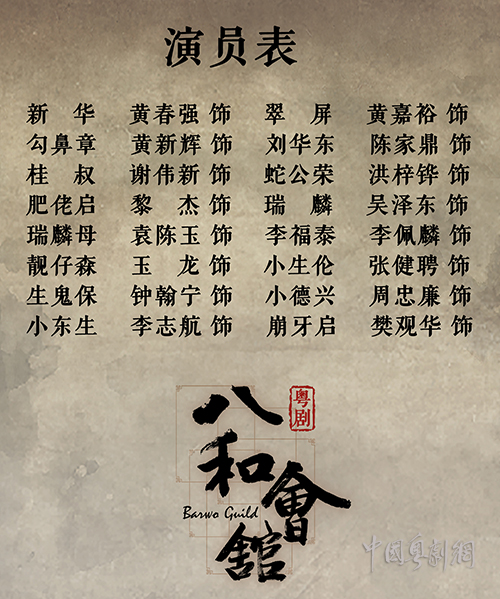 演员表
新 华 黄春强 饰 翠 屏 黄嘉裕 饰
勾鼻章 黄新辉 饰 刘华东 陈家鼎 饰
桂 叔 谢伟新 饰 蛇公荣 洪梓铧 饰
肥佬启 黎 杰 饰 瑞 麟 吴泽东 饰
瑞麟母 袁陈玉 饰 李福泰 李佩麟 饰
靓仔森 玉 龙 饰 小生伦 张健聘 饰
生鬼保 钟翰宁 饰 小德兴 周忠廉 饰
小东生 李志航 饰 崩牙启 樊观华 饰
粤剧
八和會舘
Barwo Guild
中國粵劇網